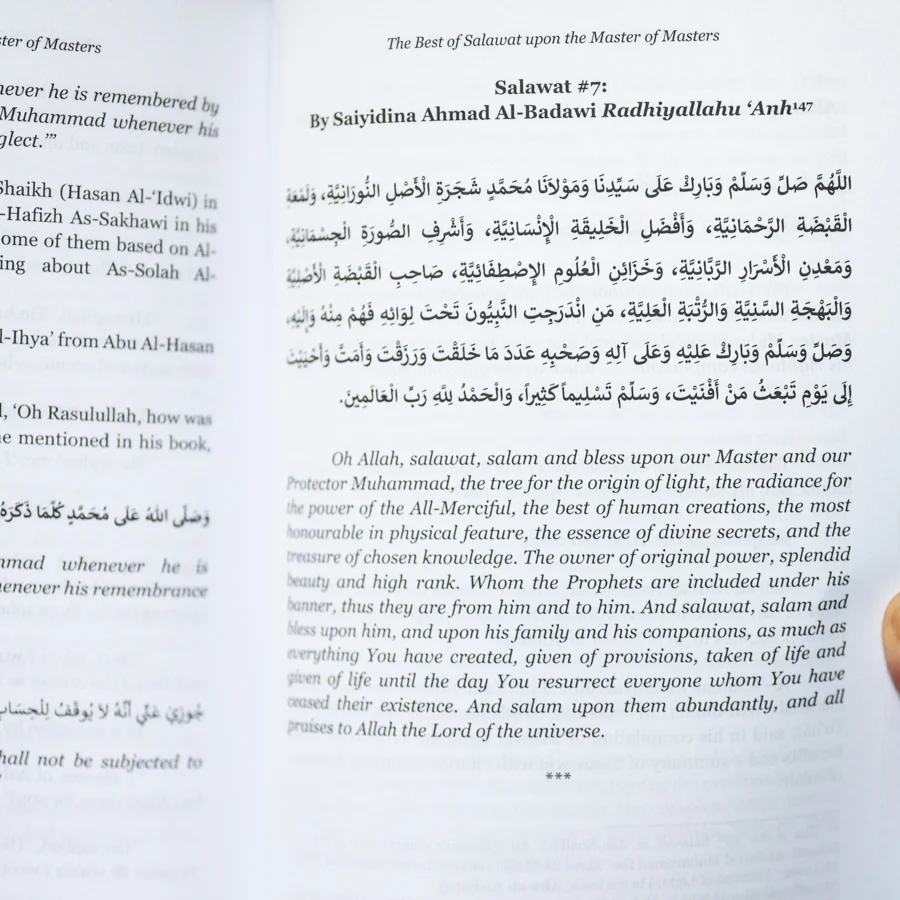 ter of Masters
never he is remembered by
Muhammad whenever his
glect.’”
Shaikh (Hasan Al-‘Idwi) in
-Hafizh As-Sakhawi in his
ome of them based on Al-
ing about As-Solah Al-
l-Ihya’ from Abu Al-Hasan
l, ‘Oh Rasulullah, how was
e mentioned in his book,
وَصَلَّى اللهُ عَلَى مُحَمَّدٍ كُلَّمَا ذَكَرَهُ
mmad whenever he is
enever his remembrance
جُوزِيَ عَنِّي أَنَّهُ لاَ يُوقَفُ لِلْحِسَابِ
hall not be subjected to
The Best of Salawat upon the Master of Masters
Salawat #7:
By Saiyidina Ahmad Al-Badawi Radhiyallahu ‘Anh¹⁴⁷
اللَّهُمَّ صَلِّ وَسَلِّمْ وَبَارِكْ عَلَى سَيِّدِنَا وَمَوْلَانَا مُحَمَّدٍ شَجَرَةِ الْأَصْلِ النُّورَانِيَّةِ، وَلَمْعَةِ
الْقَبْضَةِ الرَّحْمَانِيَّةِ، وَأَفْضَلِ الْخَلِيقَةِ الْإِنْسَانِيَّةِ، وَأَشْرَفِ الصُّورَةِ الْجِسْمَانِيَّةِ،
وَمَعْدِنِ الْأَسْرَارِ الرَّبَّانِيَّةِ، وَخَزَائِنِ الْعُلُومِ الْإِصْطِفَائِيَّةِ، صَاحِبِ الْقَبْضَةِ الْأَصْلِيَّةِ
وَالْبَهْجَةِ السَّنِيَّةِ وَالرُّتْبَةِ الْعَلِيَّةِ، مَنِ انْدَرَجَتِ النَّبِيُّونَ تَحْتَ لِوَائِهِ فَهُمْ مِنْهُ وَإِلَيْهِ،
وَصَلِّ وَسَلِّمْ وَبَارِكْ عَلَيْهِ وَعَلَى آلِهِ وَصَحْبِهِ عَدَدَ مَا خَلَقْتَ وَرَزَقْتَ وَأَمَتَّ وَأَحْيَيْتَ
إِلَى يَوْمِ تَبْعَثُ مَنْ أَفْنَيْتَ، وَسَلِّمْ تَسْلِيماً كَثِيراً، وَالْحَمْدُ لِلَّهِ رَبِّ الْعَالَمِينَ.
Oh Allah, salawat, salam and bless upon our Master and our
Protector Muhammad, the tree for the origin of light, the radiance for
the power of the All-Merciful, the best of human creations, the most
honourable in physical feature, the essence of divine secrets, and the
treasure of chosen knowledge. The owner of original power, splendid
beauty and high rank. Whom the Prophets are included under his
banner, thus they are from him and to him. And salawat, salam and
bless upon him, and upon his family and his companions, as much as
everything You have created, given of provisions, taken of life and
given of life until the day You resurrect everyone whom You have
ceased their existence. And salam upon them abundantly, and all
praises to Allah the Lord of the universe.
***